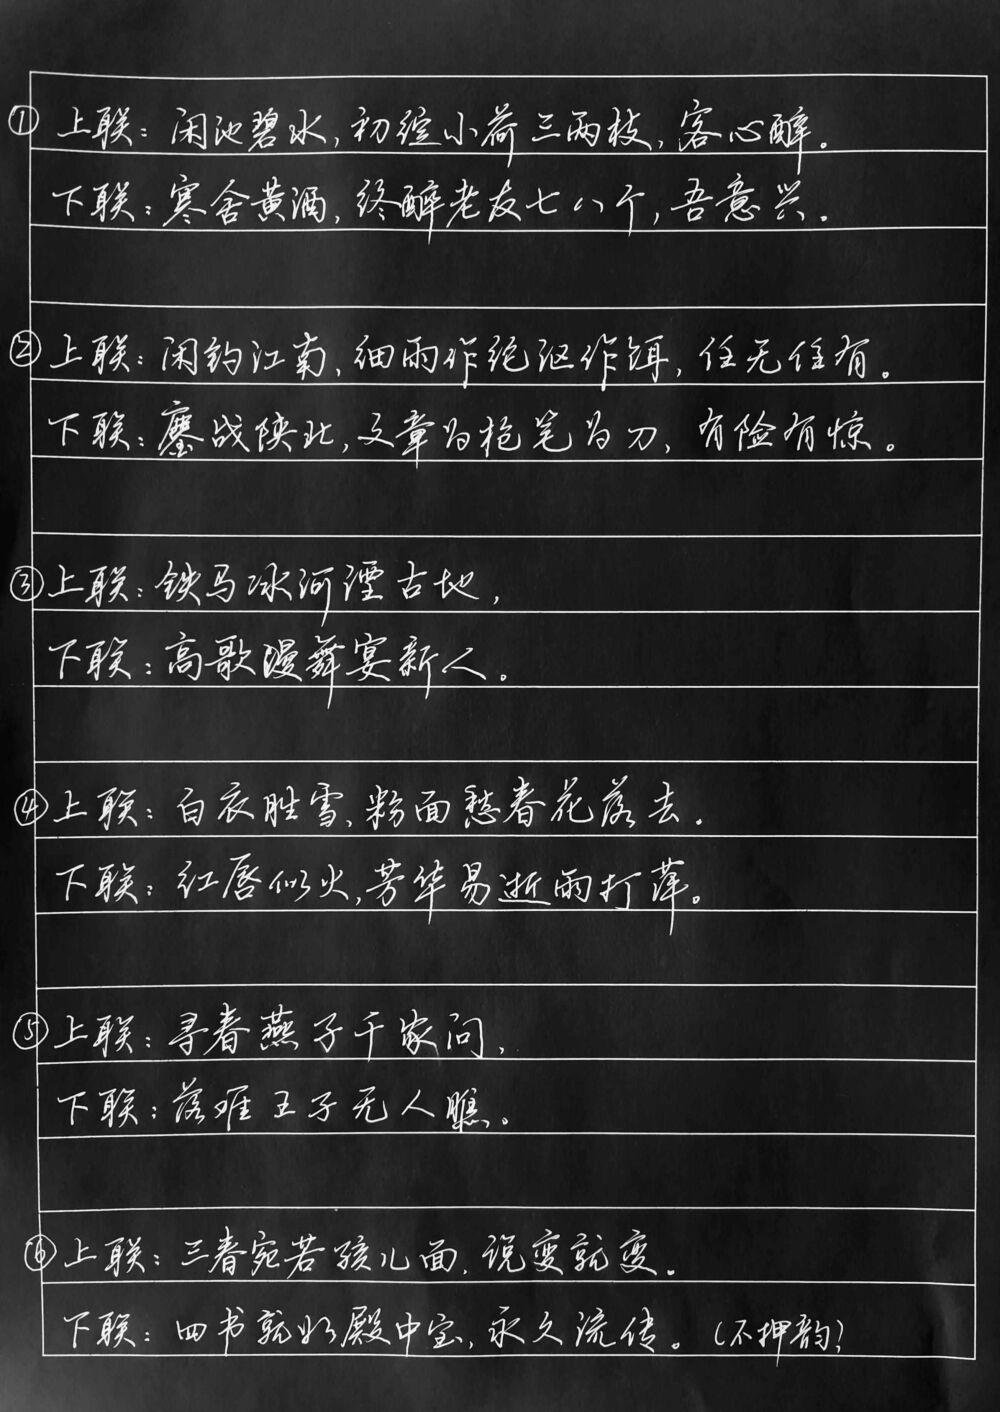 ① 上联：闲池碧水，初绽小荷三两枝，客心醉。
下联：寒舍黄酒，终醉老友七八个，吾意兴。
② 上联：闲钓江南，细雨作纶沤作饵，任无任有。
下联：鏖战陕北，文章为枪笔为刀，有险有惊。
③ 上联：铁马冰河湮古地，
下联：高歌漫舞宴新人。
④ 上联：白衣胜雪、粉面愁春花落去．
下联：红唇似火，芳华易逝雨打萍。
⑤ 上联：寻春燕子千家问，
下联：落难王子无人瞧。
⑥ 上联：三春宛若孩儿面，说变就变。
下联：四书就如殿中宝，永久流传。（不押韵）